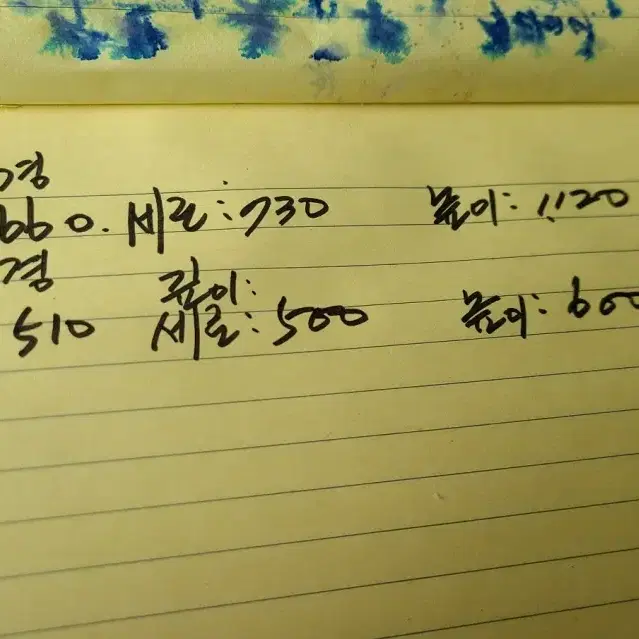 경
660. 세로: 730 높이: 1,120
경 깊이:
510 세로: 500 높이: 600